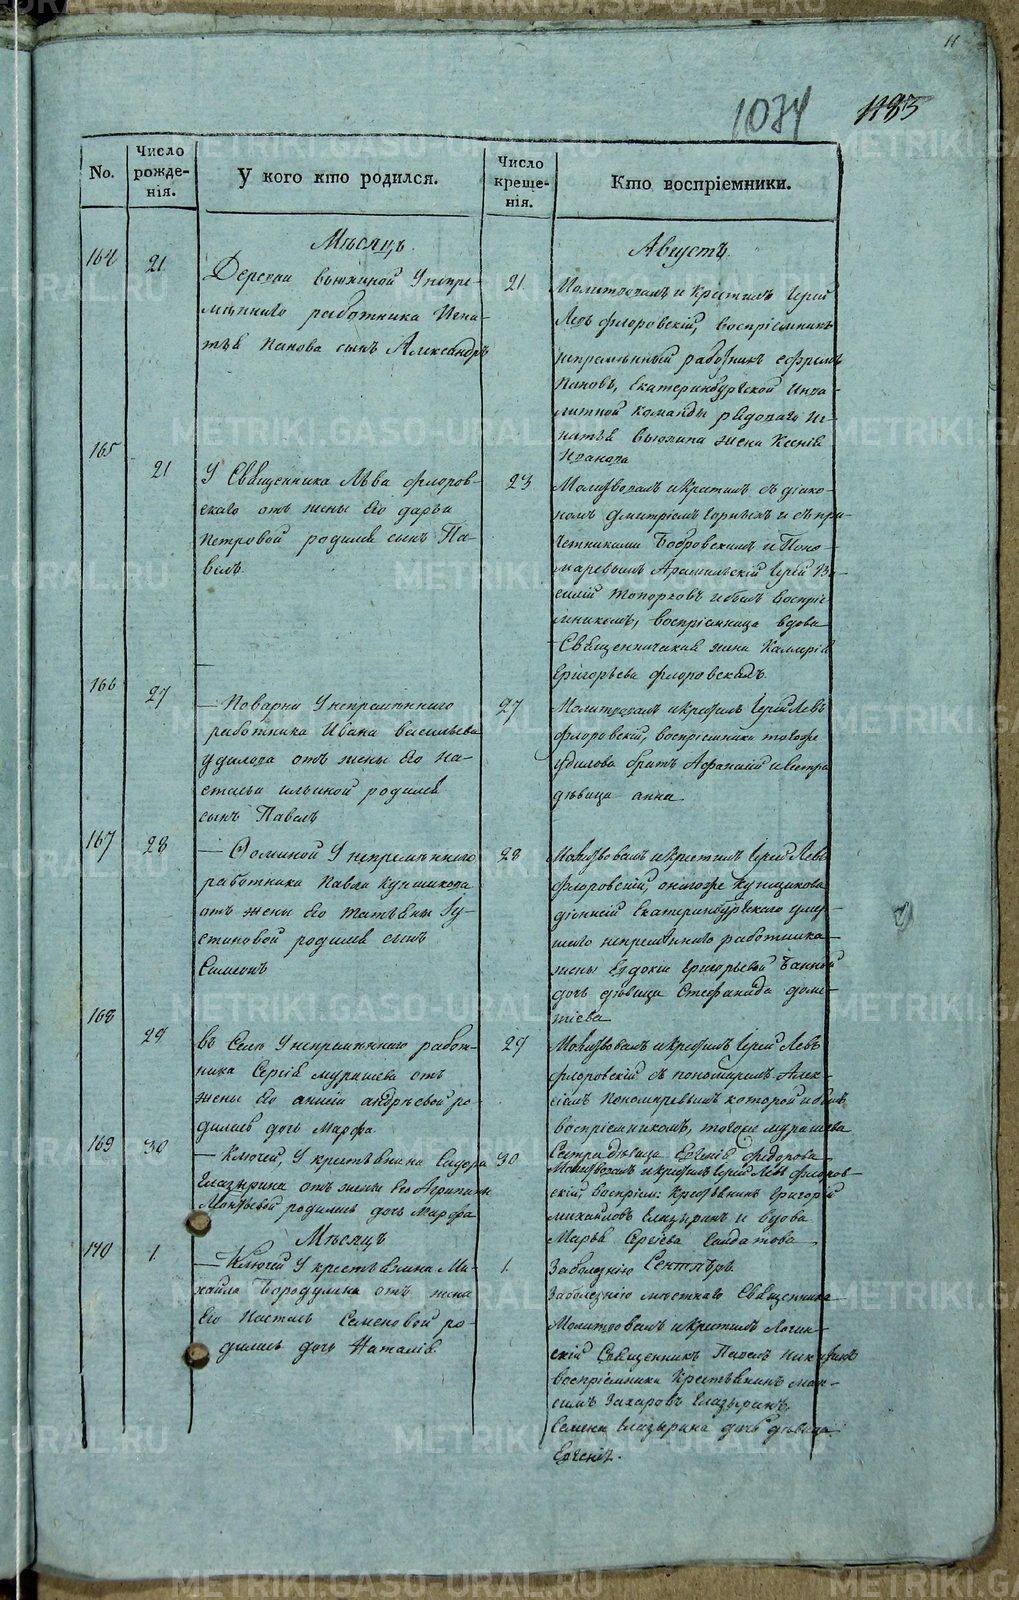 11
1034
1183
No.
Число рожде-нія.
У кого кто родился.
Число креще-нія.
Кто воспріемники.
Мѣсяцъ
Августъ
164
21
Деревни вьюхиной у непре-
мѣннаго работника Игна-
тья Панова сынъ Александръ
21
Молитвовалъ и крестилъ Іерей
Левъ флоровскій, воспріемникъ
непремѣнный работникъ ефремъ
Пановъ, Екатеринбургской инва-
лидной команды рядоваго Иг-
натья Вьюхина жена Ксенія
Иванова
165
21
У Священника Льва флоров-
скаго отъ жены его дарьи
Петровой родился сынъ Па-
велъ
23
Молитвовалъ и крестилъ съ діако-
номъ дмитріемъ и съ при-
четниками Бобровскимъ и Поно-
маревымъ Арамильскій Іерей Ва-
силій Топорковъ и былъ воспріе-
мникомъ, воспріемница вдова
Священническая жена
Григорьева флоровская
166
27
— Поварни у непремѣннаго
работника Ивана васильева
удилова отъ жены его На-
стасьи ильиной родился
сынъ Павелъ
27
Молитвовалъ и крестилъ Іерей Левъ
флоровскій, воспріемники тогоже
удилова братъ Афанасій и сестра
дѣвица анна
167
28
— Фоминой у непремѣннаго
работника Павла Кунщикова
отъ жены его Татьяны Іу-
стиновой родился сынъ
Симеонъ
28
Молитвовалъ и крестилъ Іерей Левъ
флоровскій, онагоже Кунщикова
діонисій Екатеринбургскаго умер-
шаго непремѣннаго работника
жены Евдокіи Григорьевой Банной
дочь дѣвица Стефанида доме-
тіева
168
29
въ Селѣ у непремѣннаго работ-
ника Сергія мурашева отъ
жены его анисіи андреевой ро-
дилась дочь Марфа
29
Молитвовалъ и крестилъ Іерей Левъ
флоровскій съ пономаремъ Алек-
сіемъ Пономаревымъ которой и былъ
воспріемникомъ, тогоже мурашева
Сестра дѣвица Евгенія федорова
169
30
— Ключей, у крестьянина Сидора
Глазырина отъ жены его Агрипины
родилась дочь Марфа
30
Молитвовалъ и крестилъ Іерей Левъ флоров-
скій, воспріем: Крестьянинъ Григорій
михайловъ Глазыринъ и вдова
Марья Сергіева Солдатова
Мѣсяцъ
Сентябрь
170
1.
— Ключей у крестьянина Ми-
хайла Бородулина отъ жены
его Настасьи Семеновой ро-
дилась дочь Наталія
1.
Заболезнію
Заболезнію мѣстнаго Священника
Молитвовалъ и крестилъ Логин-
скій Священникъ Павелъ
воспріемники Крестьянинъ мак-
симъ Захаровъ Глазыринъ
Семена Глазырина дочь дѣвица
Евгенія.
METRIKI.GASO-URAL.RU